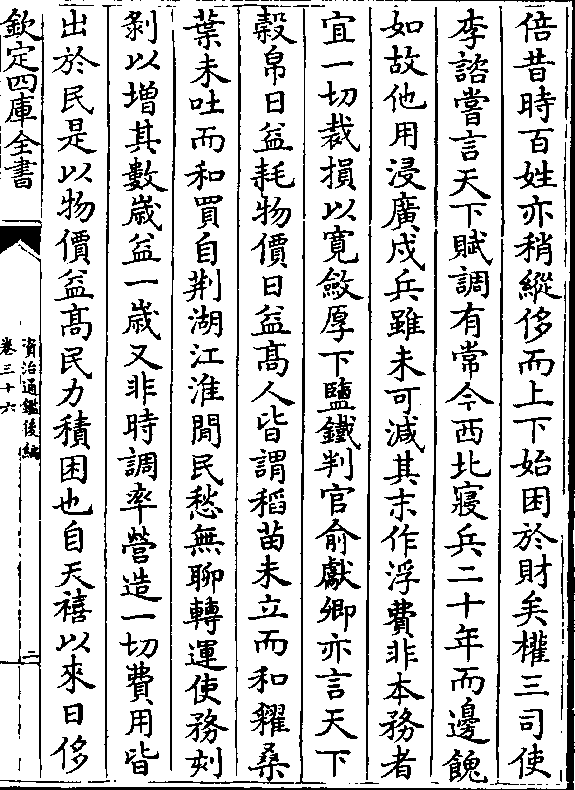 倍昔時百姓亦稍縱侈而上下始困於財矣權三司使
李諮嘗言天下賦調有常今西北寢兵二十年而邊餽
如故他用浸廣戍兵雖未可減其末作浮費非本務者
宜一切裁損以寛斂厚下鹽鐵判官俞獻卿亦言天下
穀帛日益耗物價日益髙人皆謂稻苗未立而和糴桑
葉未吐而和買自荆湖江淮間民愁無聊轉運使務刻
剝以增其數嵗益一嵗又非時調率營造一切費用皆
出於民是以物價益髙民力積困也自天禧以來日侈
欽定四庫全書
資治通鑑後編
卷三十六
二